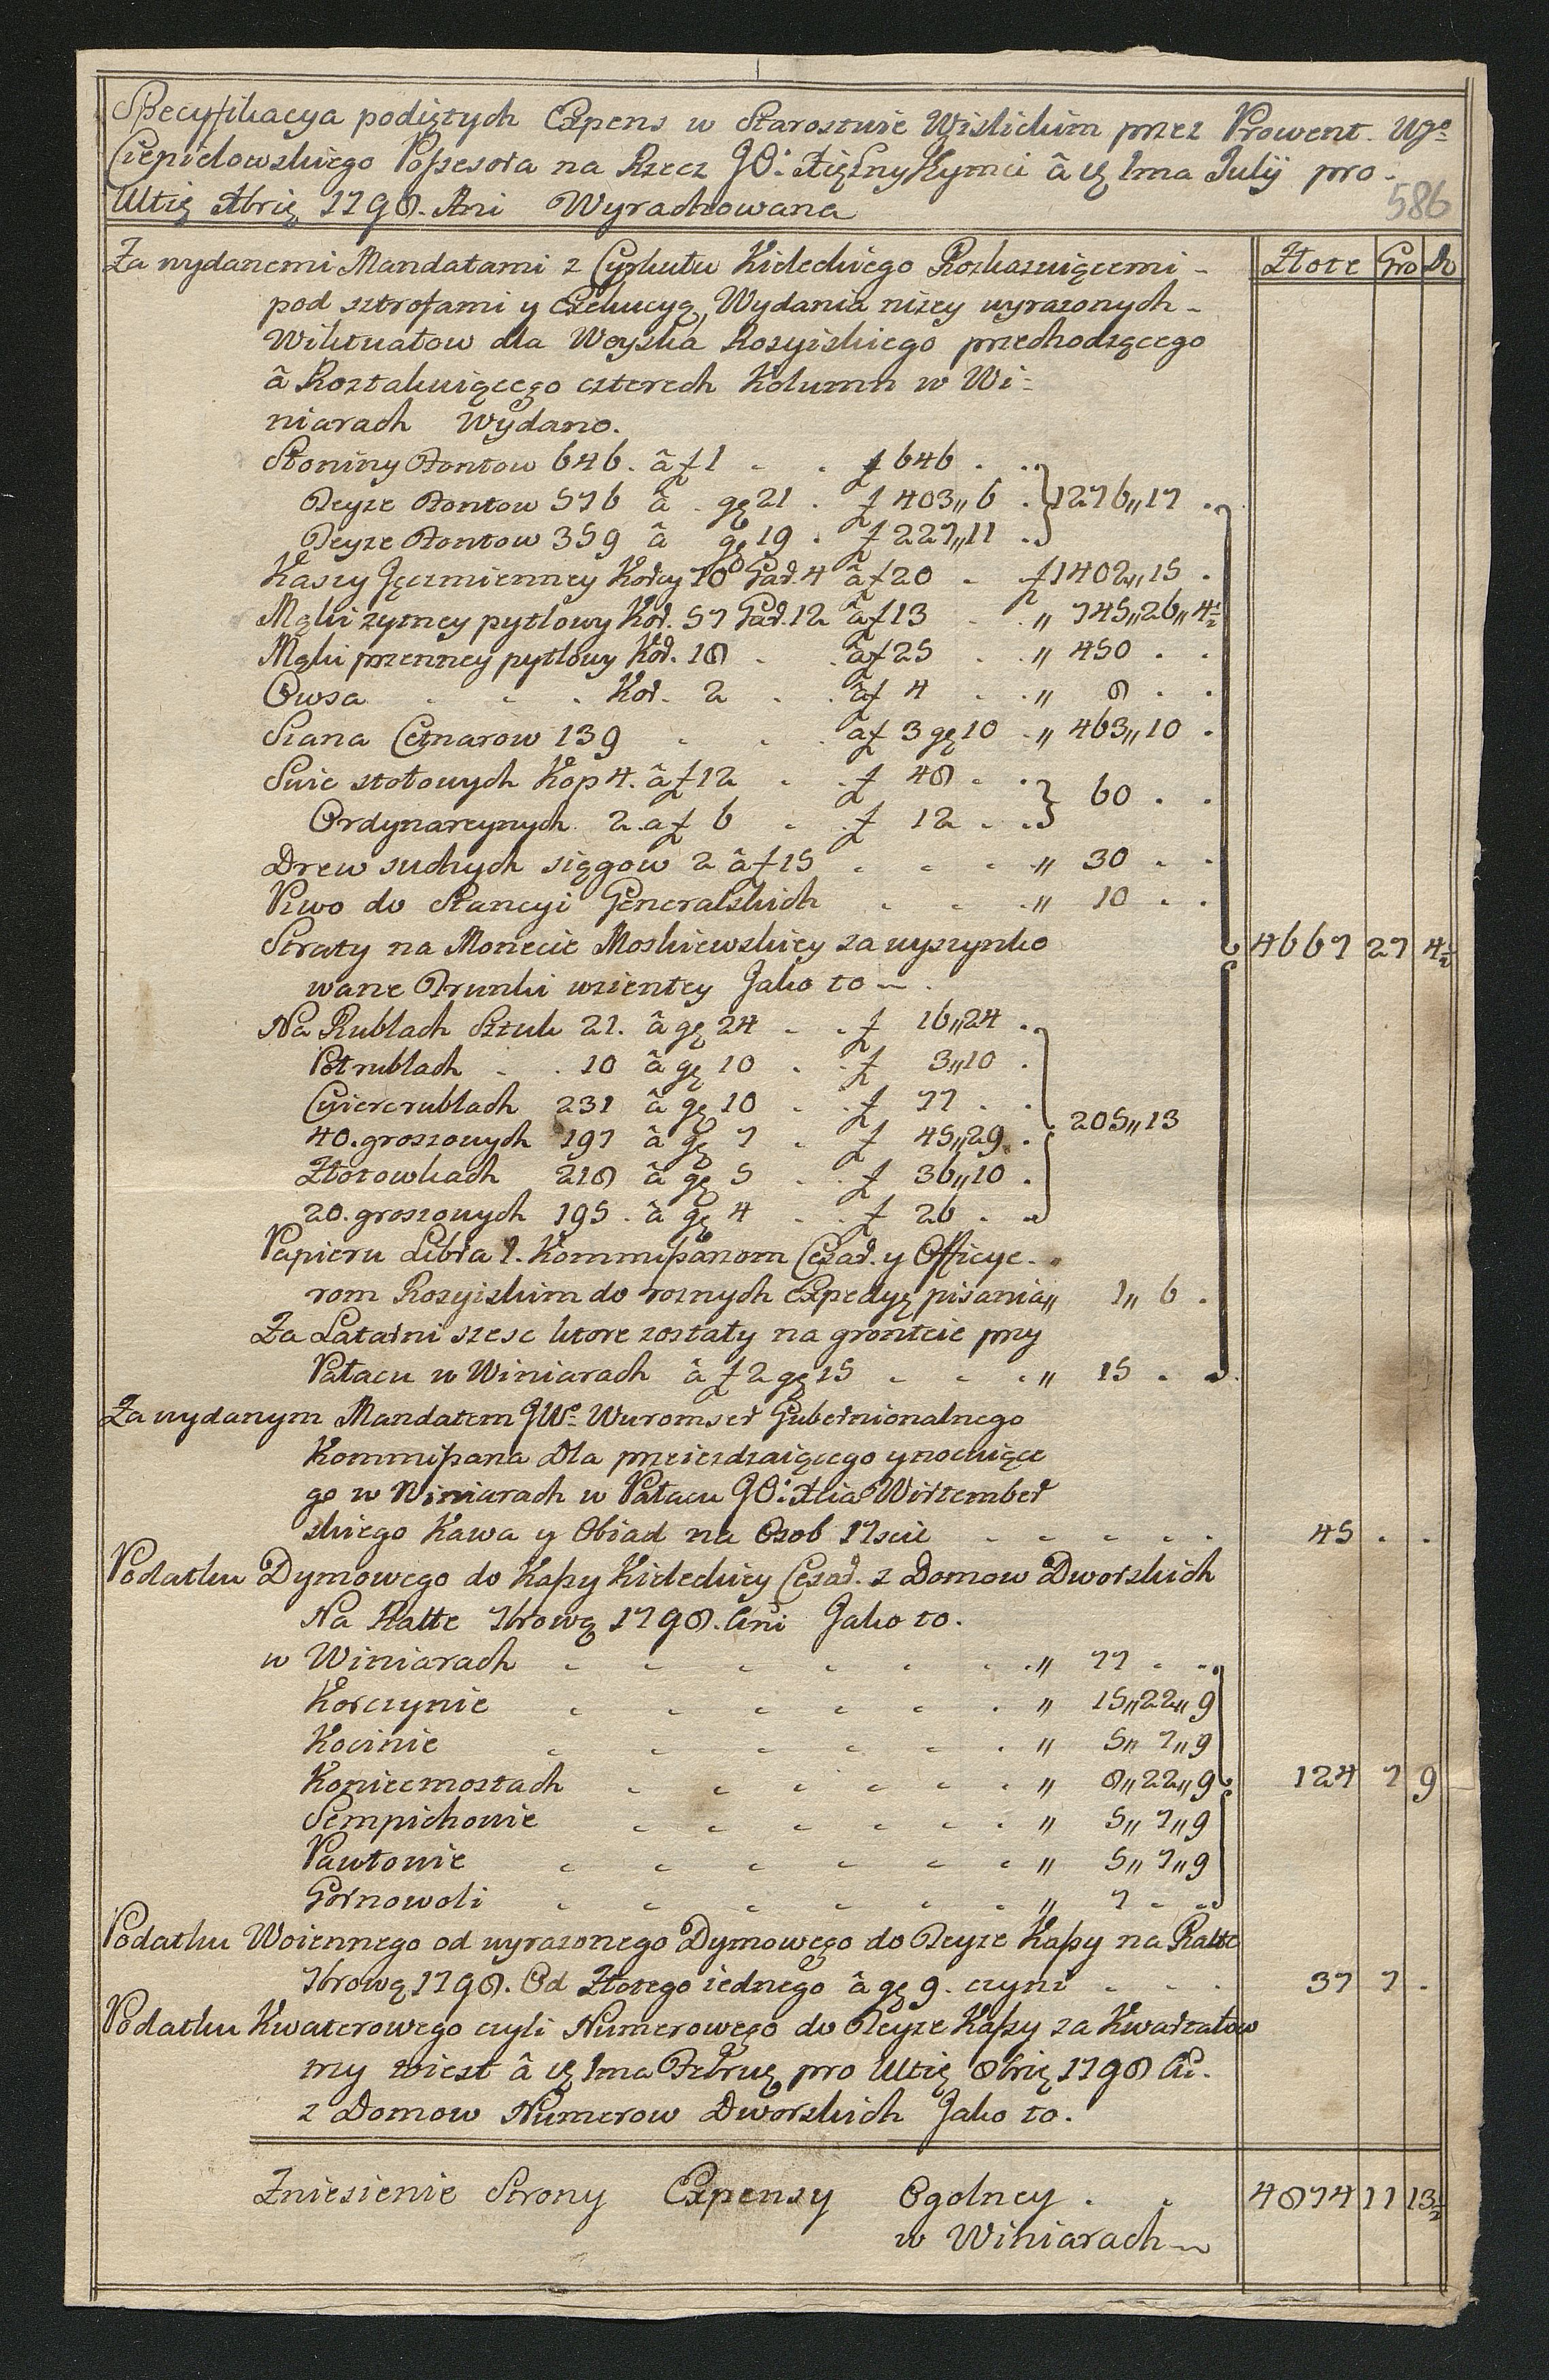 Specyfikacya podiętych Expens w Starostwie Wislickim przez Prowent. Wgo
Ciepielowskiego Possesora na Rzecz JO: Xiężny Xymci â 1ma Julij pro
Ultię Xbrię 1798. Ani Wyrachowana
586
Za wydanemi Mandatami z Cyrkułu Kieleckiego Rozkazuiącemi -
Złote Gro D
pod sztrofami y Exekucyą, Wydania niżey wyrazonych -
Wiktuałow dla Woyska Rosyiskiego przechodzącego
â Roztakuiącego czterech Kolumn w Wi=
niarach Wydano.
Słoniny Fontow 646. â f 1 . . f 646 . .
Teyze Fontow 576 â . gę 21 . f 403,, 6 . 1276,, 17 .
Teyze Fontow 359 â gę 19 . f 227,, 11 .
Kaszy Jęczmienney Korcy 70 Gar. 4 â f 20 . f 1402,, 15 .
Mąki zytney pytlowy Kor. 57 Gar. 12 â f 13 . ,, 745,, 26,, 4½
Mąki przenney pytlowy Kor. 18 . . â f 25 . . ,, 450 . .
Owsa . . . Kor. 2 . . â f 4 . . ,, 8 . .
Siana Cetnarow 139 . . . â f 3 gę 10 . ,, 463,, 10 .
Swic stołowych Kop 4. â f 12 . . f 48 . . 60 . .
Ordynarcynych 2. a f 6 . . f 12 . .
Drew suchych siągow 2 â f 15 . . . . ,, 30 . .
Piwo do Stancyi Generalskich . . . ,, 10 . .
Straty na Monecie Moskiewskiey za wyszynko 4667 27 4½
wane Trunki wzientey Jako to -
Na Rublach Sztuk 21. â gę 24 . . f 16,, 24 .
Połrublach . . 10 â gę 10 . . f 3,, 10 .
Cwiercrublach 231 â gę 10 . . f 77 . . 205,, 13
40. groszowych 197 â gę 7 . f 45,, 29 .
Złotowkach 218 â gę 5 . . f 36,, 10 .
20. groszowych 195 . â gę 4 . . f 26 . .
Papieru Libra 1. Kommissarzom Cesar. y Officye-
rom Rosyiskim do roznych Expedyę pisania ,, 1,, 6 .
Za Latarni szesc ktore zostały na gruncie przy
Pałacu w Winiarach â f 2 gę 15 . . . ,, 15 . .
Za wydanym Mandatem JWo Wuromser Gubernionalnego
Kommissarza Dla przeiezdzaiącego y nocuiące
go w Winiarach w Pałacu JO: Xcia Wirtember
skiego Kawa y Obiad na Osob 17scie . . . . . 45 . .
Podatku Dymowego do Kassy Kieleckiey Cesar. z Domow Dworskich
Na Ratte 7brową 1798. Ani Jako to.
w Winiarach . . . . . . . ,, 77 . .
Korczynie . . . . . . ,, 15,, 22,, 9
Kocinie . . . . . . ,, 5,, 7,, 9
Koniecmostach . . . . . . ,, 8,, 22,, 9 124 7 9
Sempichowie . . . . . . ,, 5,, 7,, 9
Pawłowie . . . . . . ,, 5,, 7,, 9
Gornowoli . . . . . . ,, 7 . .
Podatku Woiennego od wyrazonego Dymowego do Teyze Kassy na Ratte
7brową 1798. Od Złotego iednego â gę 9. czyni . . . 37 7 .
Podatku Kwaterowego czyli Numerowego do Teyze Kassy za Kwartałow
my iest â 1ma Febrę pro Ultię 8brię 1798 Ai.
z Domow Numerow Dworskich Jako to.
Zniesienie Strony Expensy Ogolney . . 4874 11 13½
w Winiarach